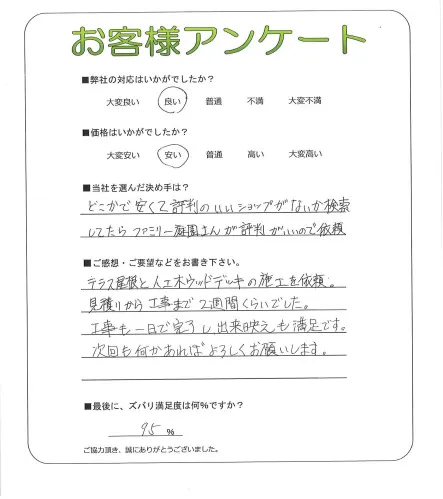 お客様アンケート
■弊社の対応はいかがでしたか?
大変良い 良い 普通 不満 大変不満
■価格はいかがでしたか?
大変安い 安い 普通 高い 大変高い
■当社を選んだ決め手は?
どこかで安くて評判のいいショップがないか検索
してたらファミリー庭園さんが評判がいいので依頼
■ご感想・ご要望などをお書き下さい。
テラス屋根と人工木ウッドデッキの施工を依頼。
見積りから工事まで2週間くらいでした。
工事も一日で完了し、出来映えも満足です。
次回も何かあればよろしくお願いします。
■最後に、ズバリ満足度は何%ですか?
95 %
ご協力頂き、誠にありがとうございました。